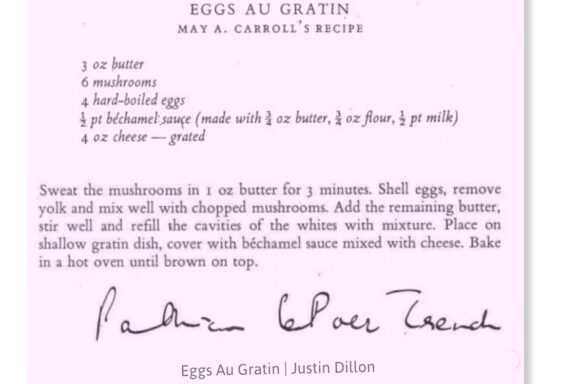 EGGS AU GRATIN
MAY A. CARROLL'S RECIPE
3 oz butter
6 mushrooms
4 hard-boiled eggs
½ pt béchamel sauce (made with ¾ oz butter, ¾ oz flour, ½ pt milk)
4 oz cheese — grated
Sweat the mushrooms in 1 oz butter for 3 minutes. Shell eggs, remove
yolk and mix well with chopped mushrooms. Add the remaining butter,
stir well and refill the cavities of the whites with mixture. Place on
shallow gratin dish, cover with béchamel sauce mixed with cheese. Bake
in a hot oven until brown on top.
Patricia le Poer Trench
Eggs Au Gratin | Justin Dillon